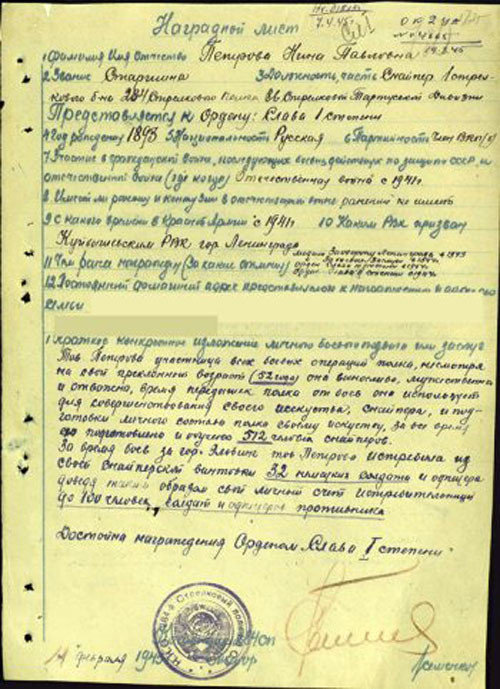 Наградной лист
7.4.45г
1 Фамилия Имя Отчество Петрова Нина Павловна
2 Звание Старшина 3 Должность, часть Снайпер 1 стрел-
кового б-на 284 Стрелкового Полка 86 Стрелковой Тартуской Дивизии
Представляется к Ордену: Слава I степени
4 Год рождения 1893 5 Национальность Русская 6 Партийность Член ВКП(б)
7 Участие в гражданской войне, последующих боевых действиях по защите СССР и
отечественной войне (где когда) Отечественная война с 1941г.
8 Имеет ли ранения и контузии в отечественной войне ранений не имеет
9 С какого времени в Красной Армии с 1941г. 10 Каким РВК призван
Куйбышевским РВК гор Ленинграда
11 Чем ранее награжден (За какие отличия)
12 Постоянный домашний адрес представляемого к награждению и адрес его
семьи
1 краткое конкретное изложение личного боевого подвига или заслуг
Тов Петрова участница всех боевых операций полка, несмотря
на свой преклонный возраст (52 года) она вынослива, мужественна
и отважна, время передышек полка от боев она использует
для совершенствования своего искусства, снайпера, и под-
готовки личного состава полка своему искуству, за все время
ею подготовлено и обучено 512 человек снайперов.
За время боев за гор. Эльбинг тов Петрова истребила из
своей снайперской винтовки 32 немецких солдата и офицера
доведя таким образом свой личный счет истребительницы
до 100 человек, солдат и офицеров противника
Достойна награждения Орденом Слава I степени
февраля 1945